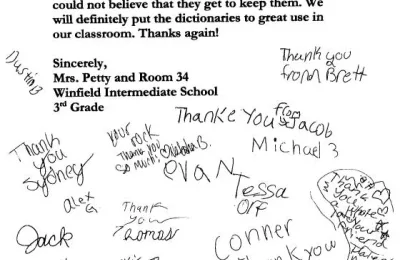 could not believe that they get to keep them. We
will definitely put the dictionaries to great use in
our classroom. Thanks again!
Sincerely,
Mrs. Petty and Room 34
Winfield Intermediate School
3rd Grade
Dustin B
Thank you
from Brett
Thanke You from Jacob
Michael B
Thank
you
Sydney
your rock
Thank you
so much!
Evan
Tessa
Orf
Alex
G.
Thank
you
Thomas
Jack
Conner
Thank you